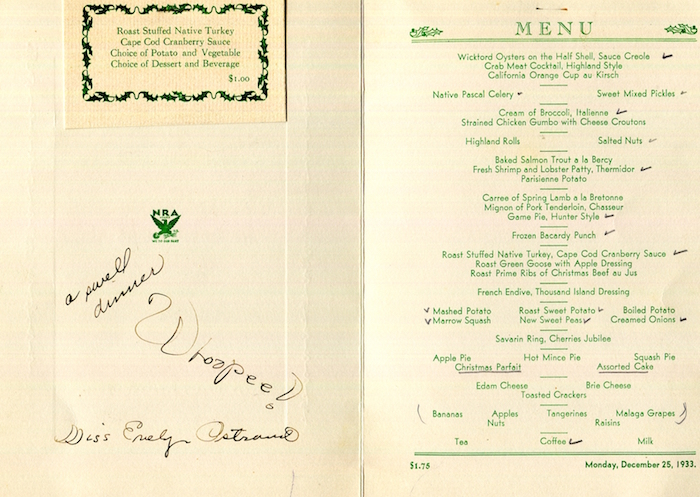 Roast Stuffed Native Turkey
Cape Cod Cranberry Sauce
Choice of Potato and Vegetable
Choice of Dessert and Beverage
$1.00
NRA
a swell
dinner
Whoopee!
Miss Evelyn Ostrand
MENU
Wickford Oysters on the Half Shell, Sauce Creole
Crab Meat Cocktail, Highland Style
California Orange Cup au Kirsch
Native Pascal Celery Sweet Mixed Pickles
Cream of Broccoli, Italienne
Strained Chicken Gumbo with Cheese Croutons
Highland Rolls Salted Nuts
Baked Salmon Trout a la Bercy
Fresh Shrimp and Lobster Patty, Thermidor
Parisienne Potato
Carree of Spring Lamb a la Bretonne
Mignon of Pork Tenderloin, Chasseur
Game Pie, Hunter Style
Frozen Bacardy Punch
Roast Stuffed Native Turkey, Cape Cod Cranberry Sauce
Roast Green Goose with Apple Dressing
Roast Prime Ribs of Christmas Beef au Jus
French Endive, Thousand Island Dressing
Mashed Potato Roast Sweet Potato Boiled Potato
Marrow Squash New Sweet Peas Creamed Onions
Savarin Ring, Cherries Jubilee
Apple Pie Hot Mince Pie Squash Pie
Christmas Parfait Assorted Cake
Edam Cheese Brie Cheese
Toasted Crackers
Bananas Apples Tangerines Malaga Grapes
Nuts Raisins
Tea Coffee Milk
$1.75 Monday, December 25, 1933.